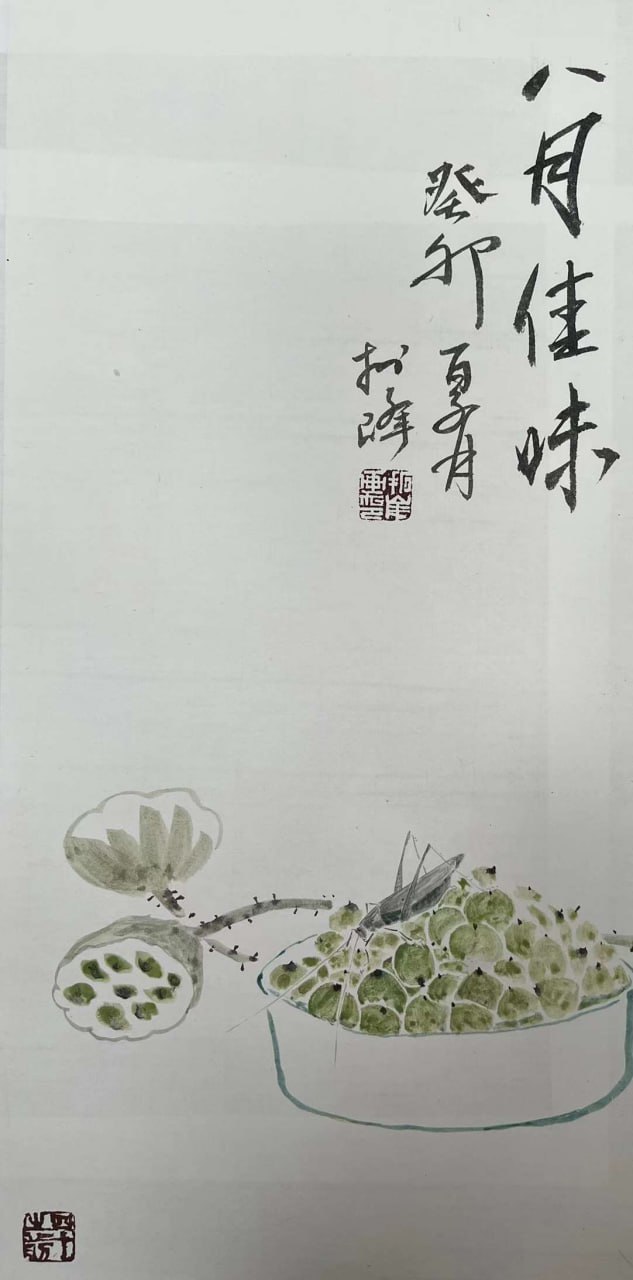 八月佳味
癸卯夏月